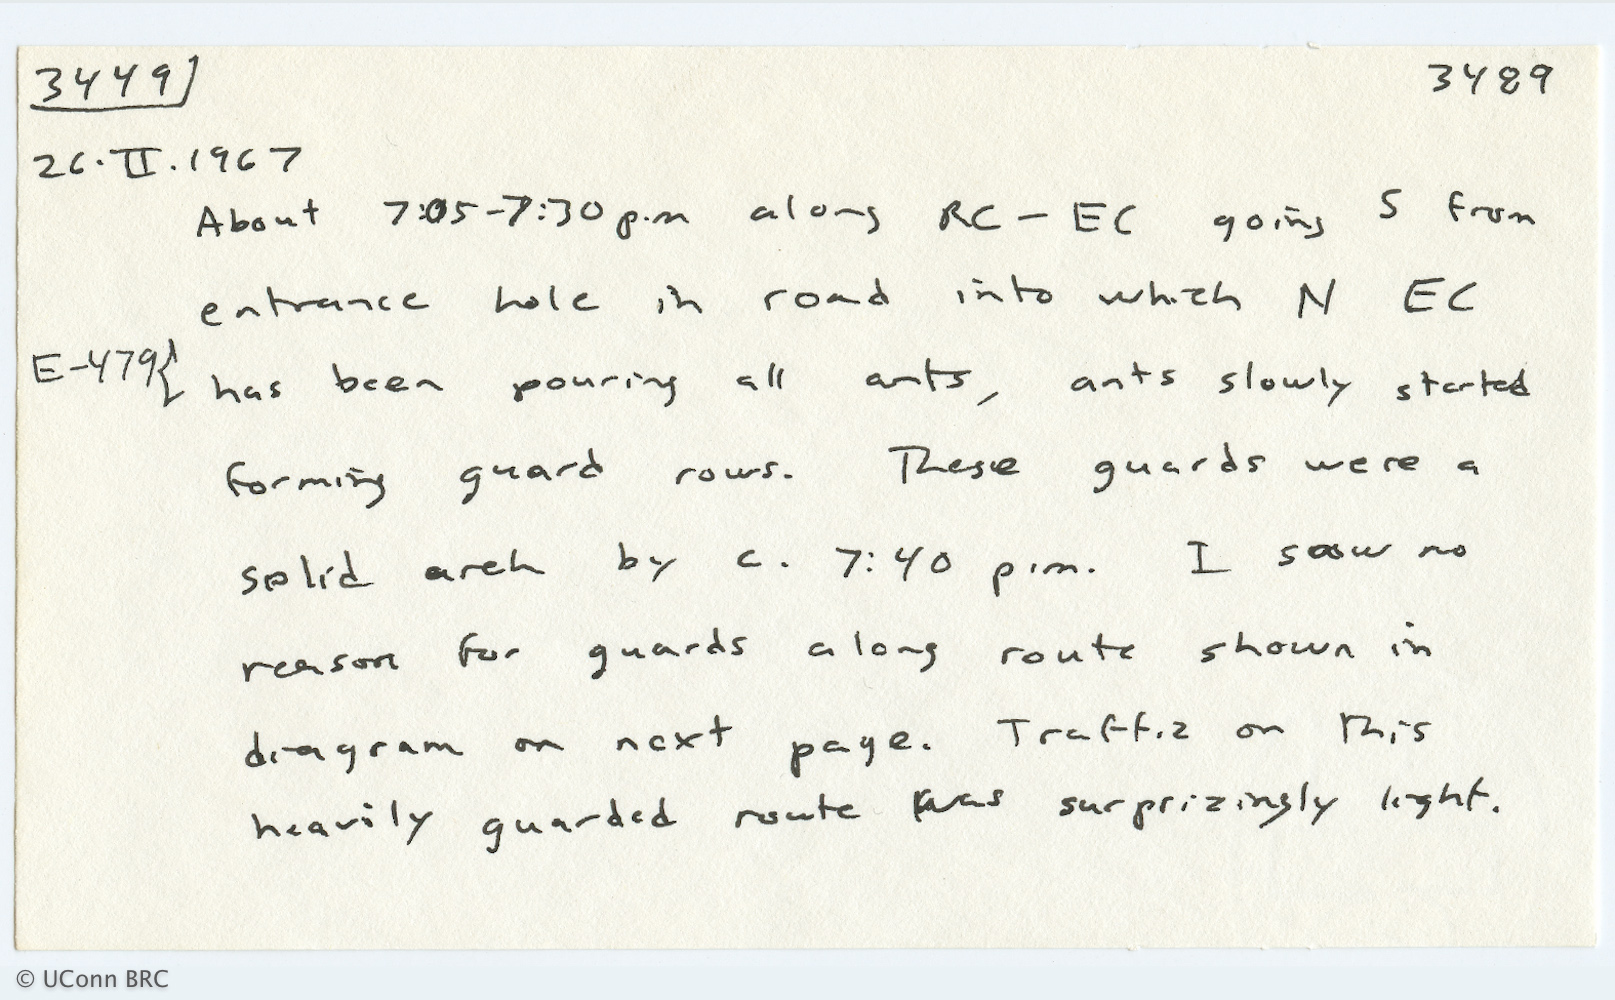 3449 3489
26.II.1967
About 7:05-7:30 p.m along RC-EC going S from
entrance hole in road into which N EC
E-479{ has been pouring all ants, ants slowly started
forming guard rows. These guards were a
solid arch by c. 7:40 p.m. I saw no
reason for guards along route shown in
diagram on next page. Traffic on this
heavily guarded route was surprizingly light.
© UConn BRC